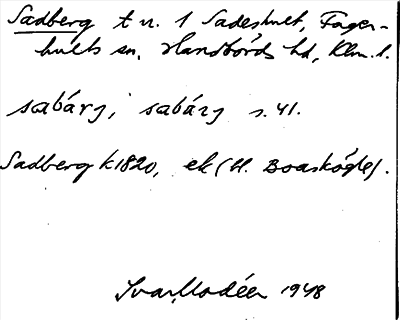 Sadberg t u. 1 Sadeshult, Fager-
hults sn, Handbörds hd, Klm. l.
sabárj, sabárj s. 41.
Sadberg k 1820, ek (H. Boaskögle).
Ivar Modéer 1948